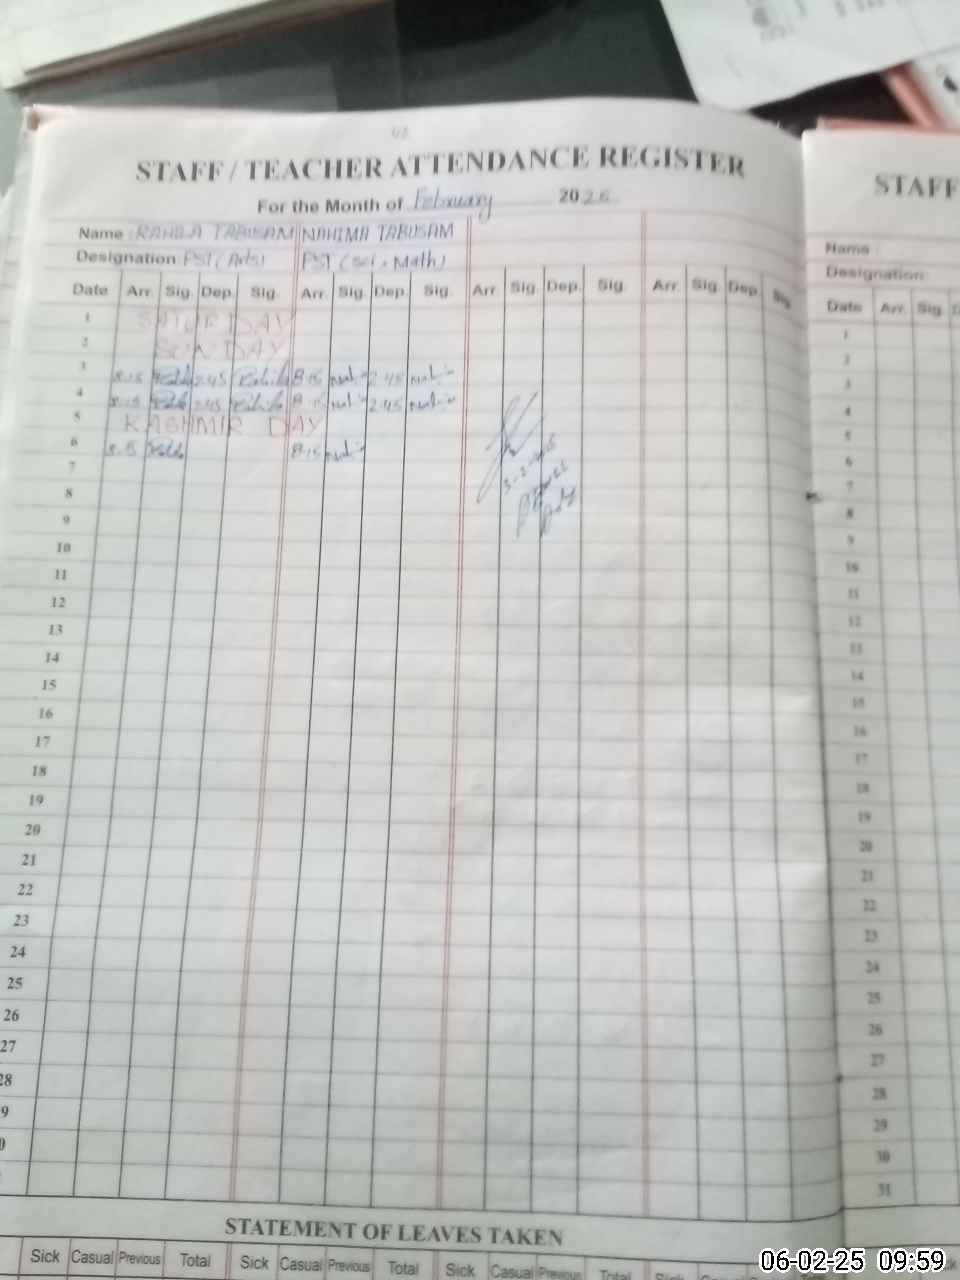 STAFF / TEACHER ATTENDANCE REGISTER
For the Month of February 2025
Name : TABUSAM NAHIMA TABUSAM
Designation PST (Arts) PST (Sci-Math)
Date Arr. Sig. Dep. Sig. Arr. Sig. Dep. Sig. Arr. Sig. Dep. Sig. Arr. Sig. Dep. Sig.
1 SATURDAY
2 SUNDAY
3 8:15 2:45 8:15 2:45
4 8:15 2:45 8:15 2:45
5 KASHMIR DAY
6 8:15 8:15
7
8
9
10
11
12
13
14
15
16
17
18
19
20
21
22
23
24
25
26
27
28
9
0
STATEMENT OF LEAVES TAKEN
Sick Casual Previous Total Sick Casual Previous Total Sick Casual Previous Total Sick
STAFF
Name :
Designation
Date Arr. Sig.
1
2
3
4
5
6
7
8
9
10
11
12
13
14
15
16
17
18
19
20
21
22
23
24
25
26
27
28
29
30
31
06-02-25 09:59